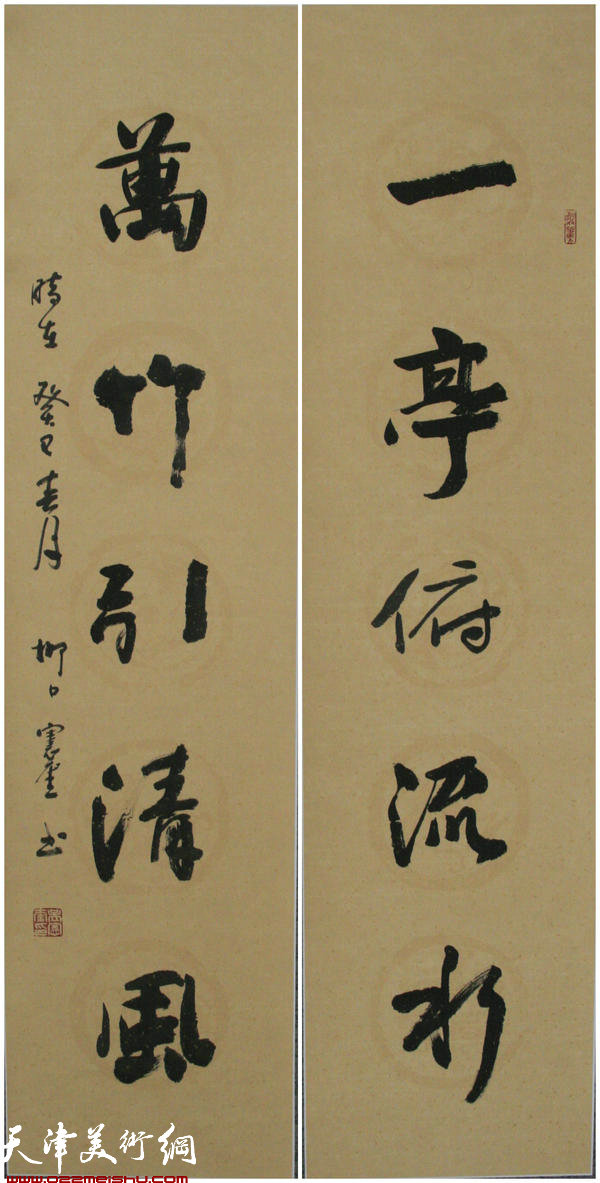 一亭俯流水
萬竹引清風
時在 癸巳春月 柳口憲奎书
天津美術網
www.022meishu.com